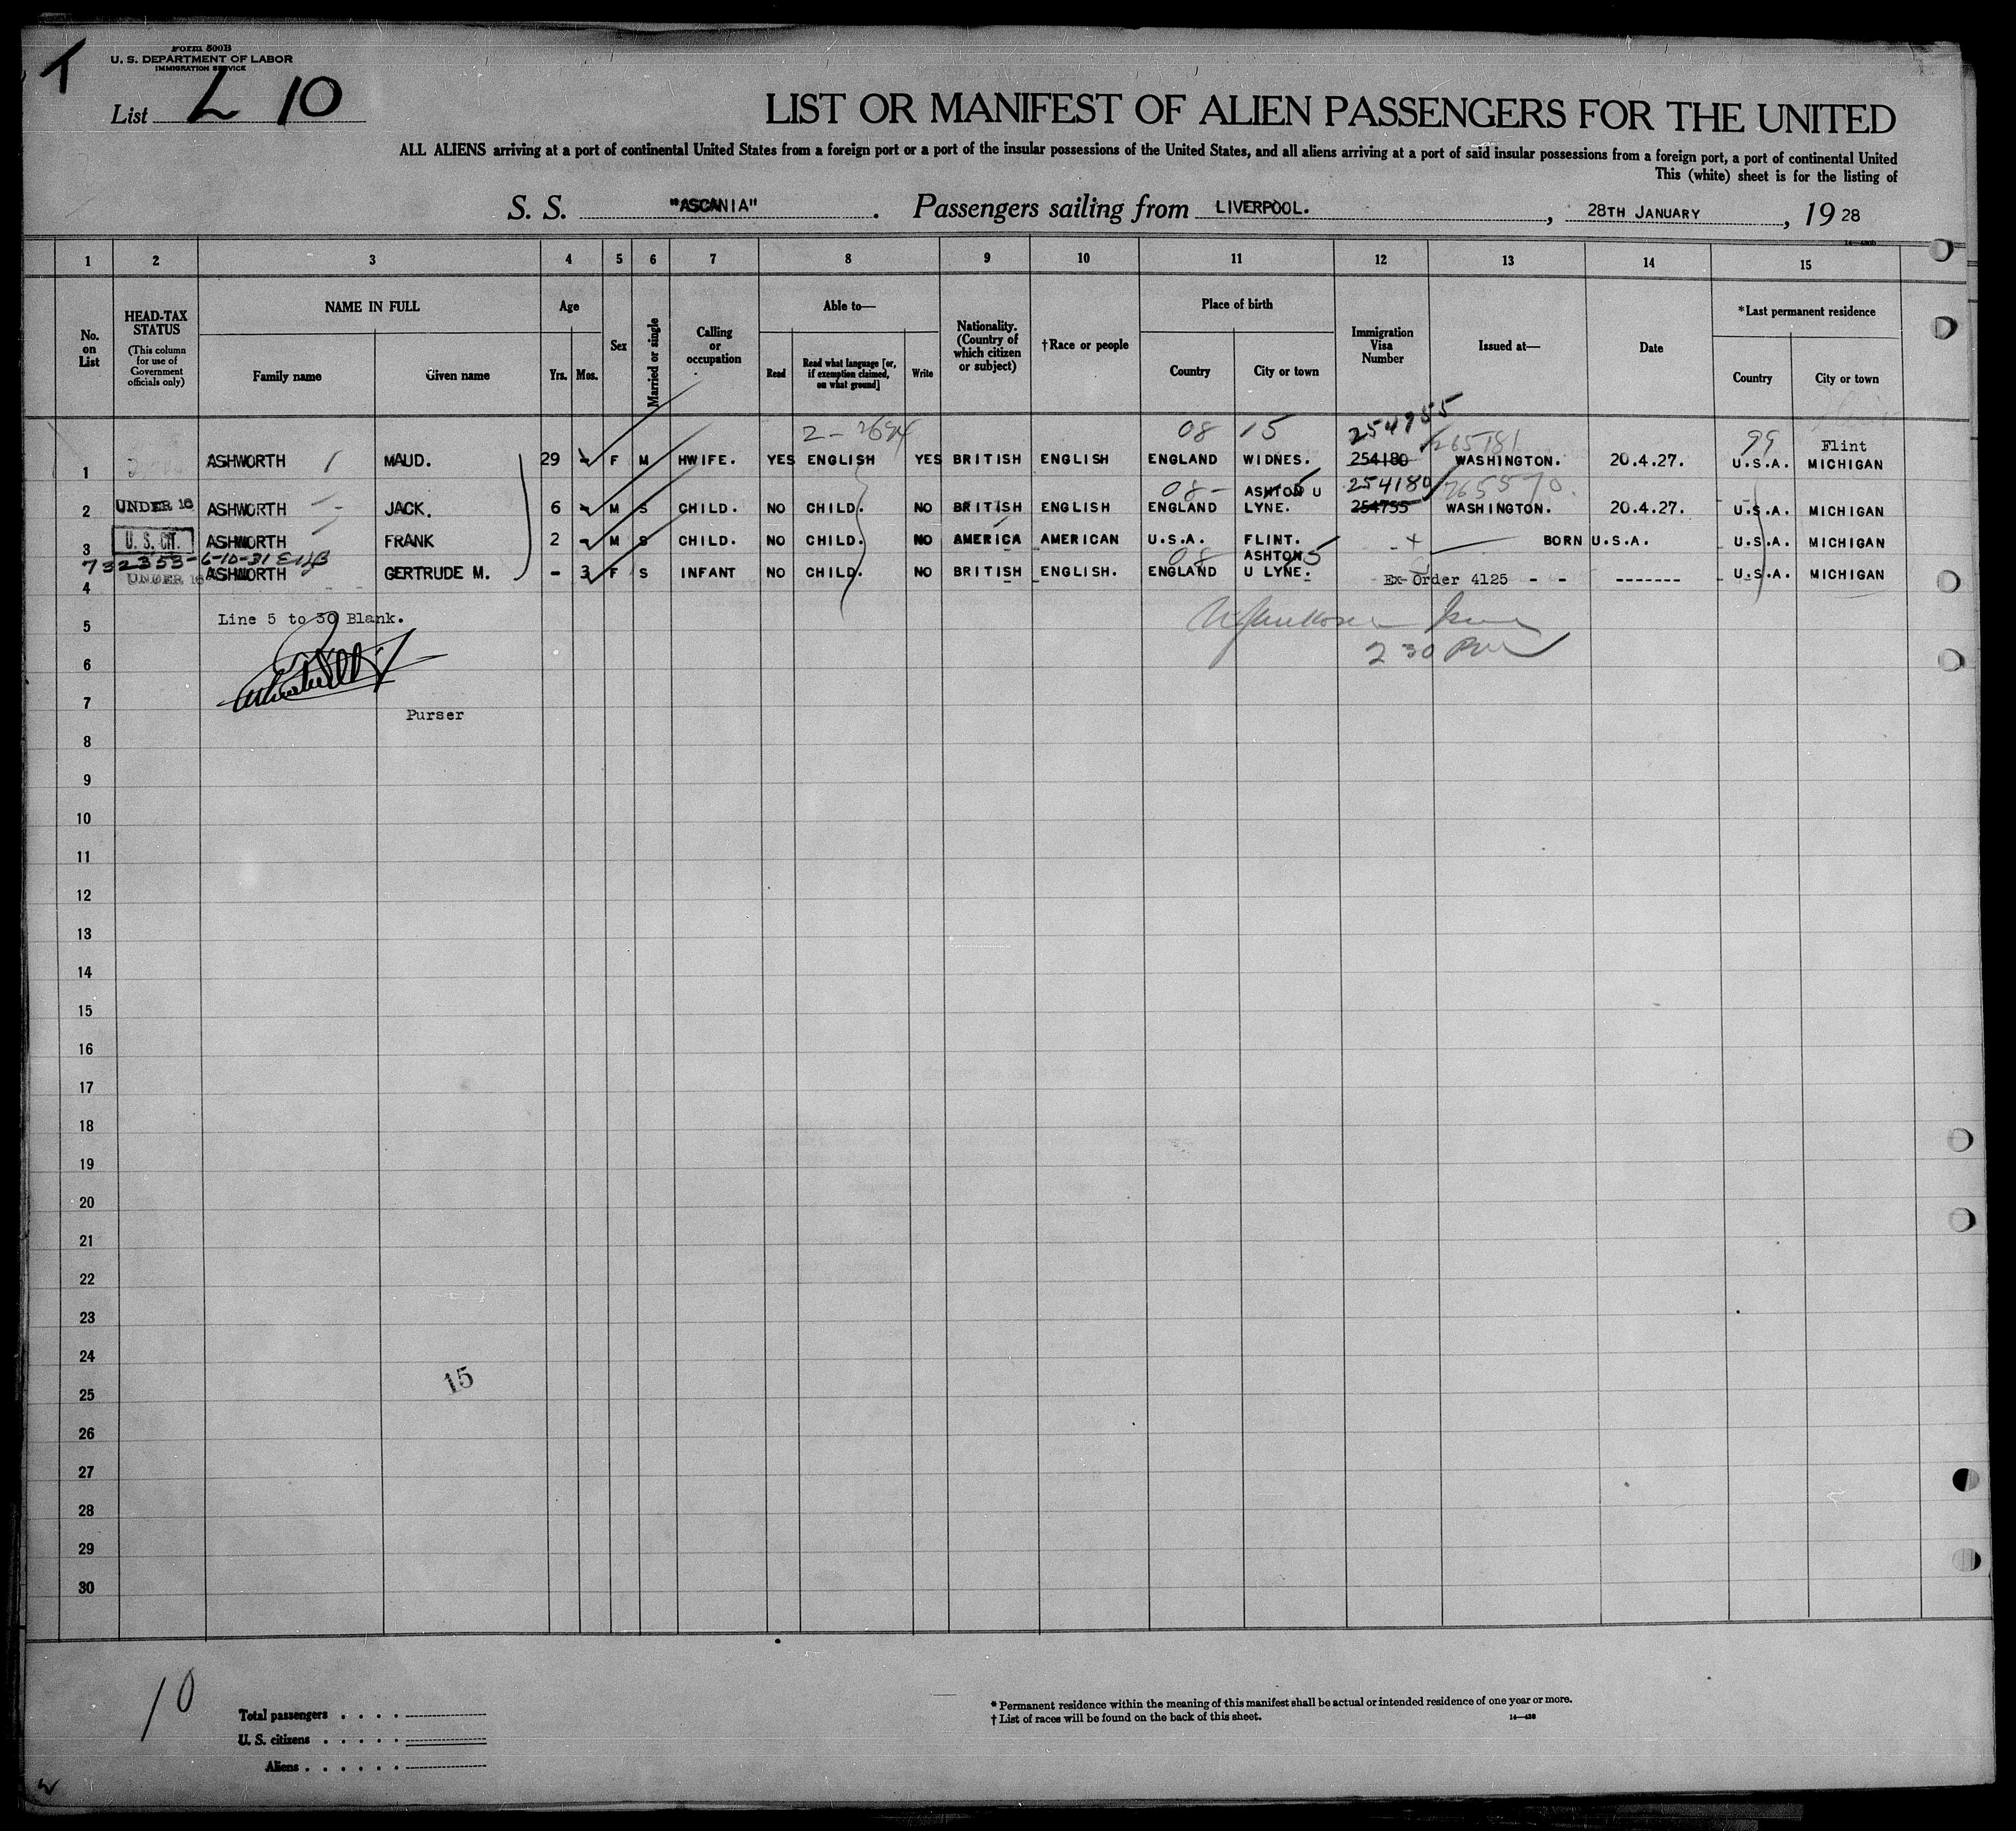 Form 500B
U. S. DEPARTMENT OF LABOR
IMMIGRATION SERVICE
List L 10
LIST OR MANIFEST OF ALIEN PASSENGERS FOR THE UNITED
ALL ALIENS arriving at a port of continental United States from a foreign port or a port of the insular possessions of the United States, and all aliens arriving at a port of said insular possessions from a foreign port, a port of continental United
This (white) sheet is for the listing of
S. S. "ASCANIA" . Passengers sailing from LIVERPOOL. , 28TH JANUARY , 19 28
1 2 3 4 5 6 7 8 9 10 11 12 13 14 15
No. on List
HEAD-TAX STATUS
(This column for use of Government officials only)
NAME IN FULL
Family name
Given name
Age
Yrs.
Mos.
Sex
Married or single
Calling or occupation
Able to—
Read
Read what language [or, if exemption claimed, on what ground]
Write
Nationality. (Country of which citizen or subject)
†Race or people
Place of birth
Country
City or town
Immigration Visa Number
Issued at—
Date
*Last permanent residence
Country
City or town
2 - 2694 08 15 254755 265181 99 Flint
1 ASHWORTH MAUD. 29 - F M HWIFE. YES ENGLISH YES BRITISH ENGLISH ENGLAND WIDNES. 254180 WASHINGTON. 20.4.27. U.S.A. MICHIGAN
08 - ASHTON U 254180
2 UNDER 16 ASHWORTH JACK. 6 - M S CHILD. NO CHILD. NO BRITISH ENGLISH ENGLAND LYNE. 254755 WASHINGTON. 20.4.27. U.S.A. MICHIGAN
3 U. S. CIT. ASHWORTH FRANK 2 - M S CHILD. NO CHILD. NO AMERICA AMERICAN U.S.A. FLINT. BORN U.S.A. U.S.A. MICHIGAN
732353-6-10-31 08 ASHTON 5
4 UNDER 16 ASHWORTH GERTRUDE M. - 3 F S INFANT NO CHILD. NO BRITISH ENGLISH. ENGLAND U LYNE. Ex-Order 4125 - - ------- U.S.A. MICHIGAN
5 Line 5 to 30 Blank.
6 2 30 PM
7 Purser
8
9
10
11
12
13
14
15
16
17
18
19
20
21
22
23
24
25 15
26
27
28
29
30
10
Total passengers . . . .
U. S. citizens . . . . .
Aliens . . . . . .
* Permanent residence within the meaning of this manifest shall be actual or intended residence of one year or more.
† List of races will be found on the back of this sheet.